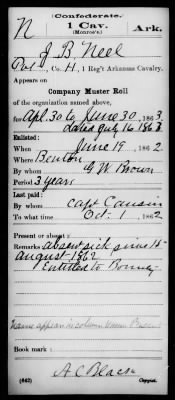 Confederate.
N 1 Cav. Ark.
(Monroe's)
J. B. Neel
Pvt, Co. H, 1 Reg't Arkansas Cavalry.
Appears on
Company Muster Roll
of the organization named above,
for Apr. 30 to June 30, 1863
dated July 16, 1863
Enlisted:
When June 19, 1862
Where Benton
By whom G. W. Brown
Period 3 years
Last paid:
By whom Capt
To what time Oct. 1, 1862
Present or absent
Remarks absent sick since 15
August 1862
Entitled to Bounty
Name appears in column Names Present
Book mark:
(642) Copyist.